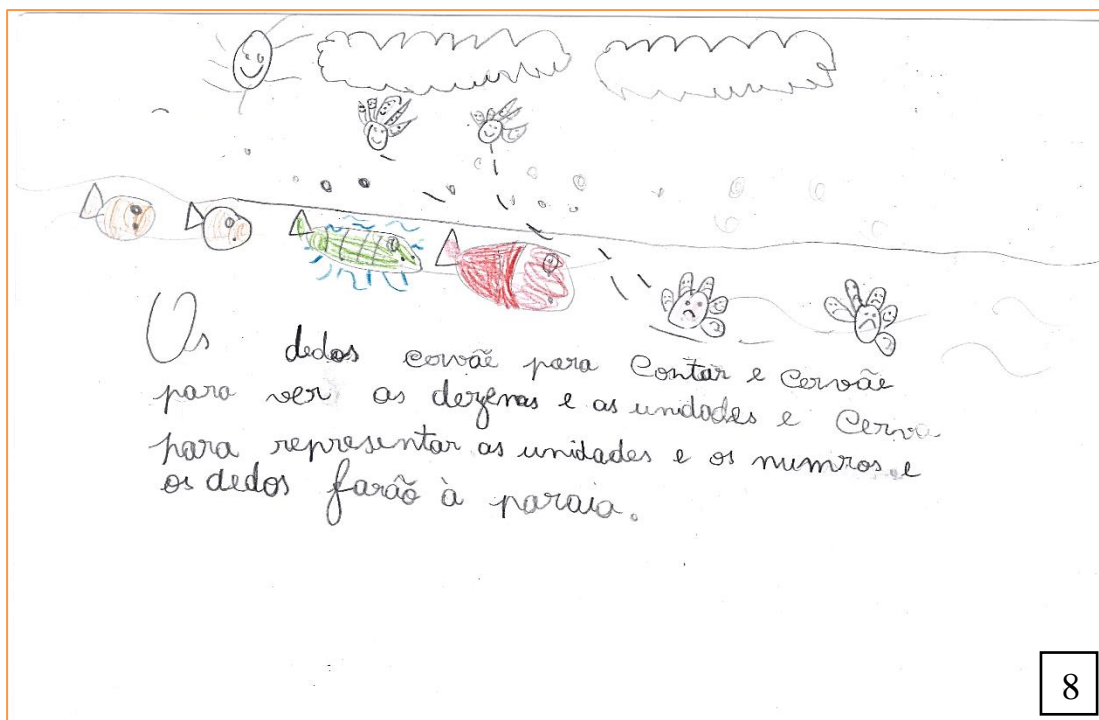 Os dedos cervãe para Contar e Cervãe
para ver as dezenas e as unidades e Cerva
para representar as unidades e os numros e
os dedos farão à paraia.
8